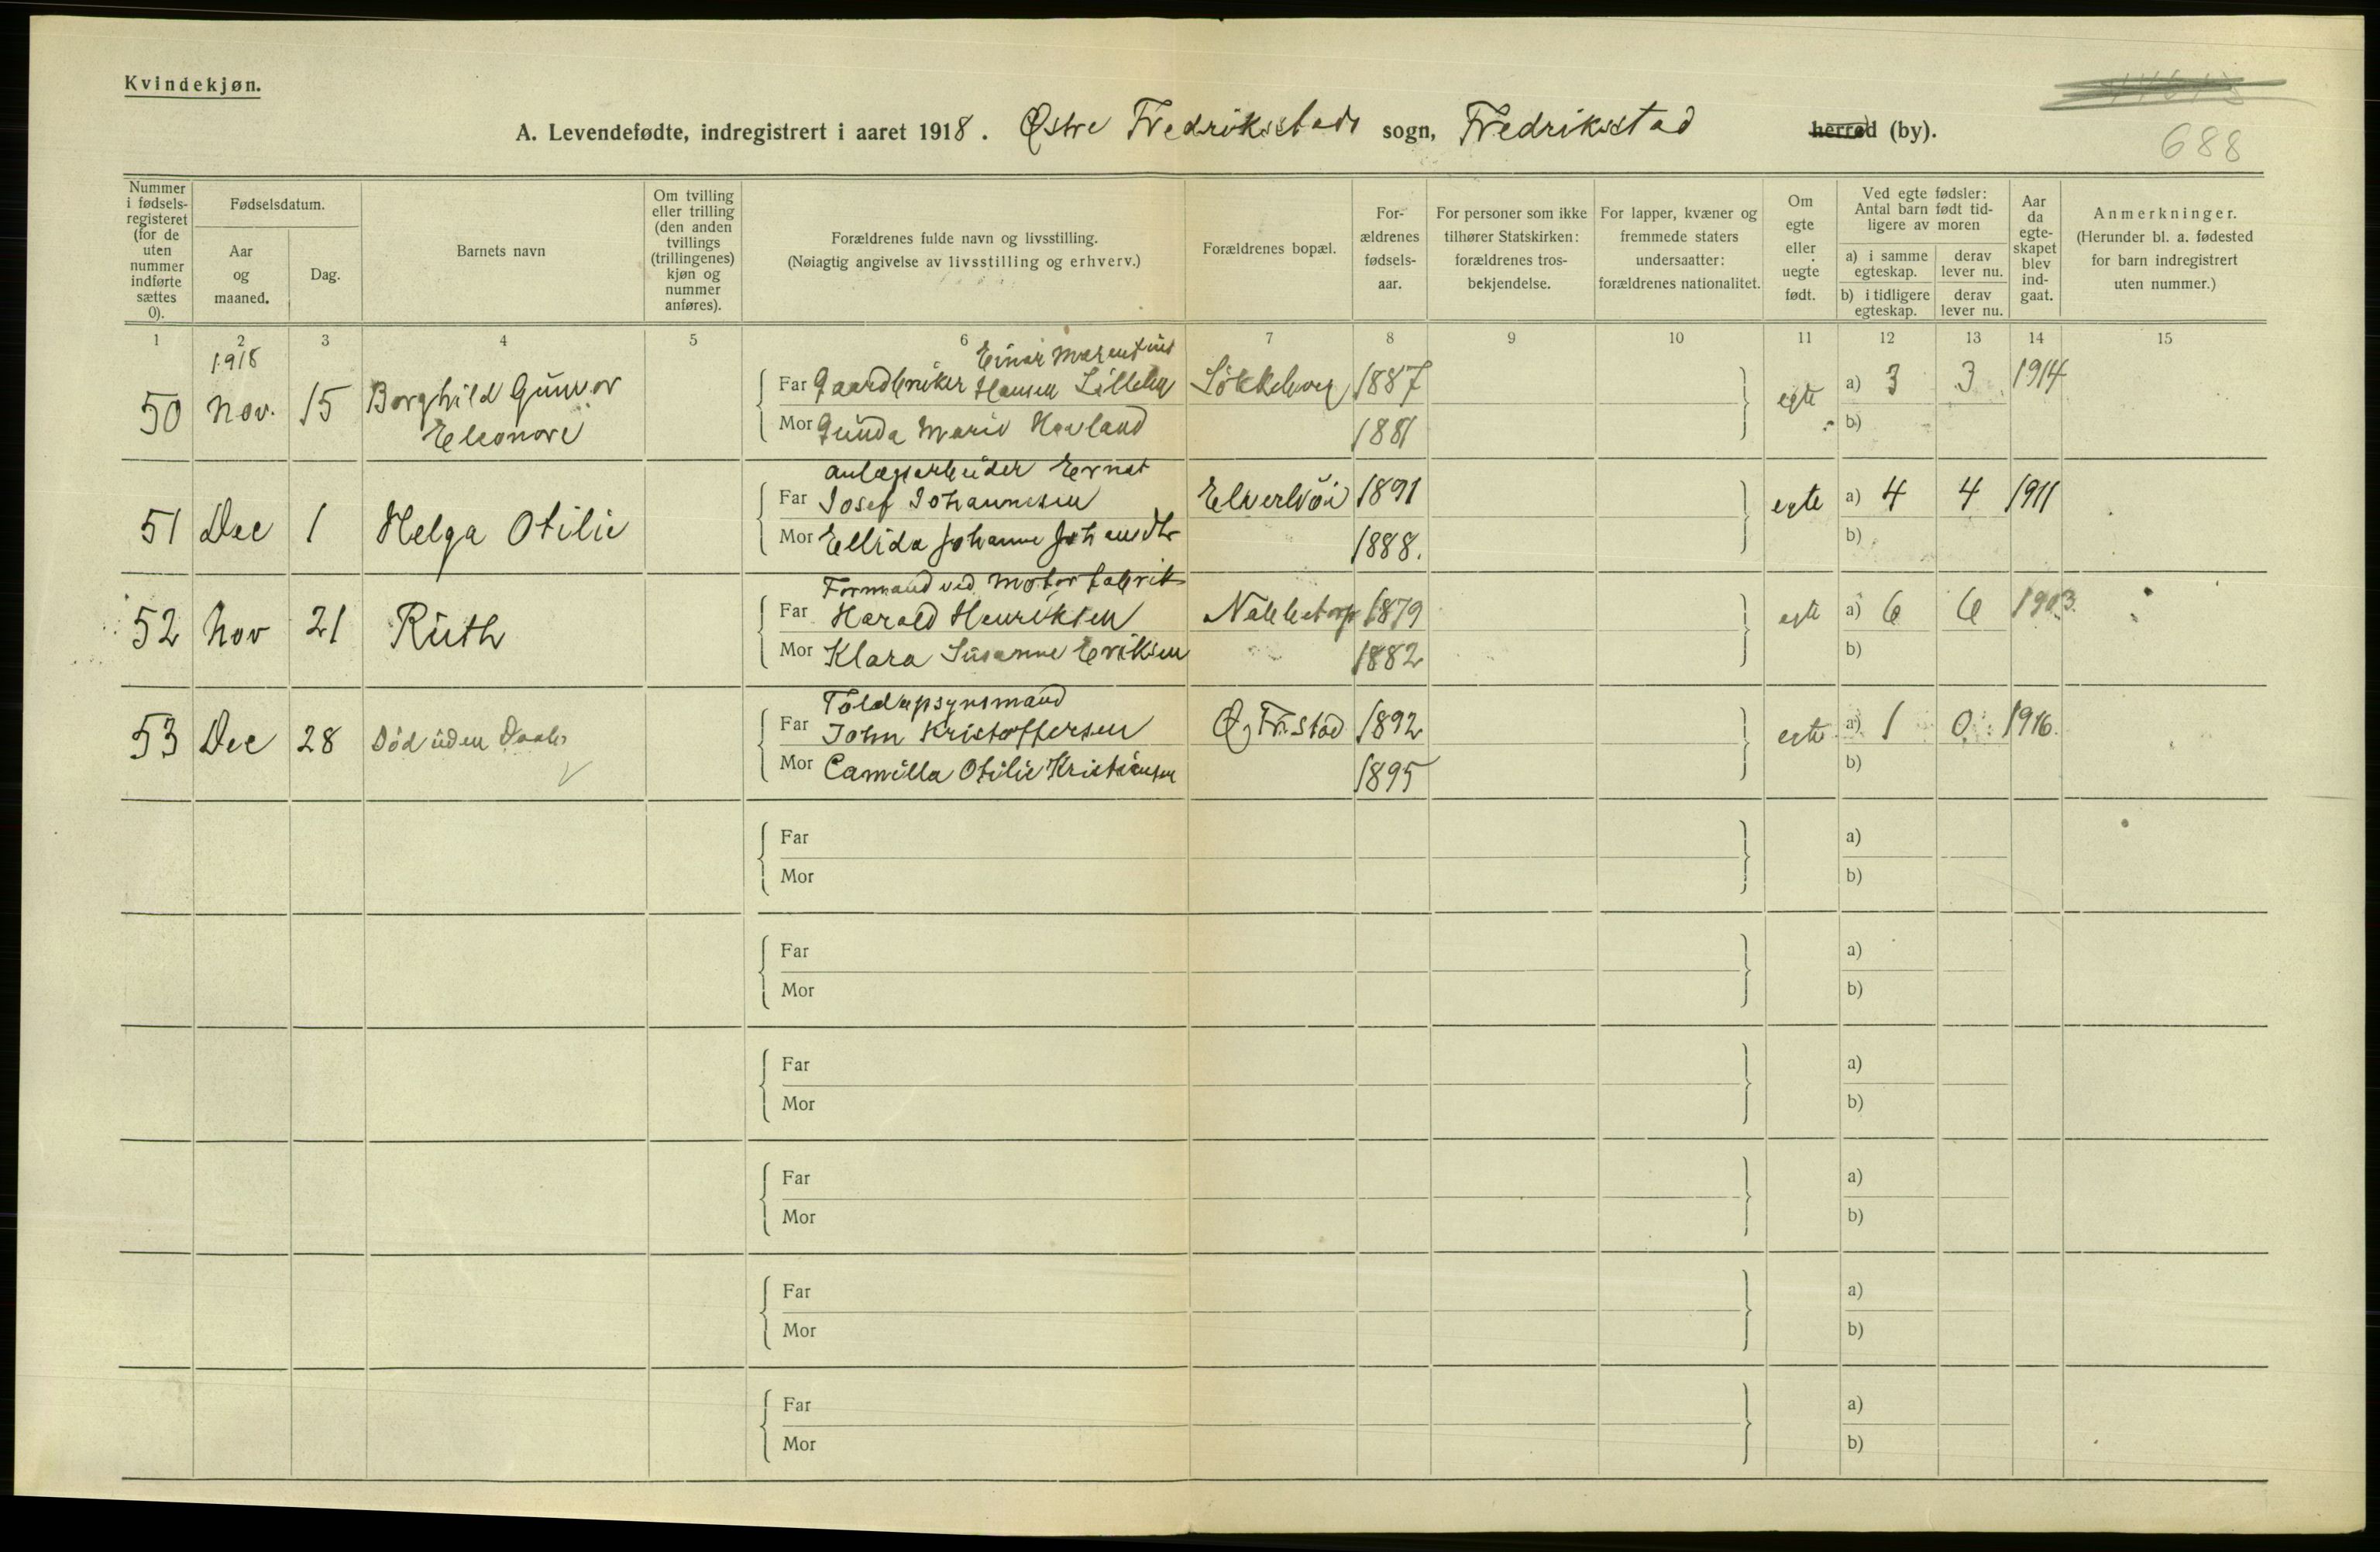 Kvindekjøn.
A. Levendefødte, indregistrert i aaret 1918. Østre Fredriksstads sogn, Fredriksstad herred (by).
688
Nummer i fødsels-registeret (for de uten nummer indførte sættes 0).
Fødselsdatum.
Aar og maaned.
Dag.
Barnets navn
Om tvilling eller trilling (den anden tvillings (trillingenes) kjøn og nummer anføres).
Forældrenes fulde navn og livsstilling.
(Nøiagtig angivelse av livsstilling og erhverv.)
Forældrenes bopæl.
For-ældrenes fødsels-aar.
For personer som ikke tilhører Statskirken: forældrenes tros-bekjendelse.
For lapper, kvæner og fremmede staters undersaatter: forældrenes nationalitet.
Om egte eller uegte født.
Ved egte fødsler: Antal barn født tid-ligere av moren
a) i samme egteskap.
derav lever nu.
b) i tidligere egteskap.
derav lever nu.
Aar da egte-skapet blev ind-gaat.
Anmerkninger.
(Herunder bl. a. fødested for barn indregistrert uten nummer.)
1 2 3 4 5 6 7 8 9 10 11 12 13 14 15
1918
Einar Marentius
50 Nov. 15 Borghild Gunvor Far Gaardbruker Hansen 1887 egte a) 3 3 1914
Eleonore Mor Gunda Marie Hovland 1881 b)
Anlægsarbeider Ernst
51 Dec 1 Helga Otilie Far Josef Johannesen 1891 egte a) 4 4 1911
Mor Ellida Johanne 1888. b)
Formand ved Motorfabrik
52 Nov 21 Ruth Far Harald Henriksen Nabbetorp 1879 egte a) 6 6 1903.
Mor Klara Susanne Eriksen 1882 b)
Toldopsynsmand
53 Dec 28 Død uden Daab Far John Kristoffersen Ø, Fr.stad 1892 egte a) 1 0 1916.
Mor Camilla Otilie Kristiansen 1895 b)
Far a)
Mor b)
Far a)
Mor b)
Far a)
Mor b)
Far a)
Mor b)
Far a)
Mor b)
Far a)
Mor b)